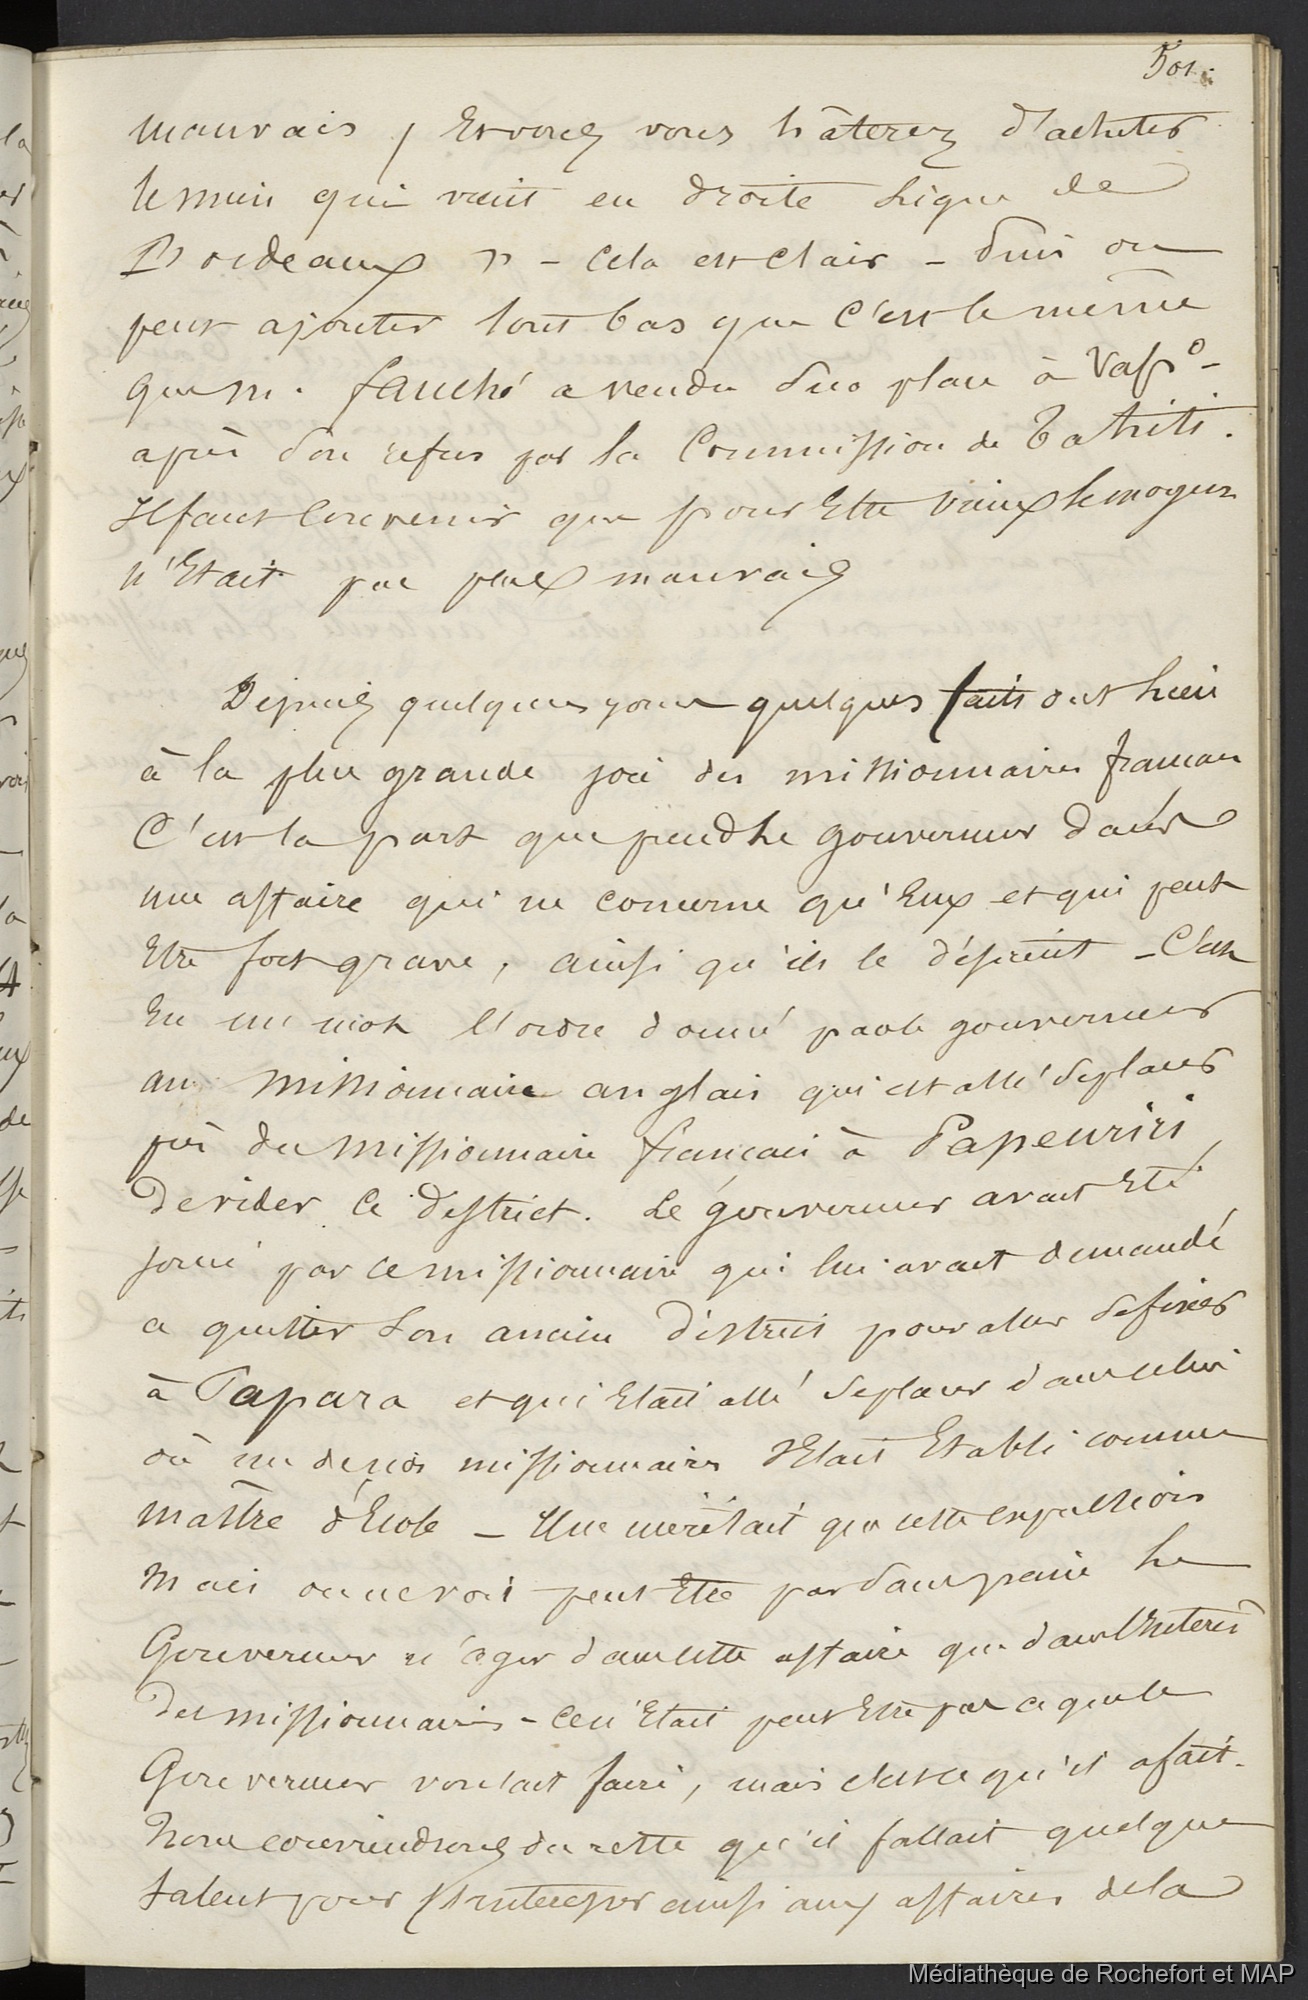 501.
mauvais, et vous vous hâterez d'acheter
le mien qui vient en droite ligne de
Bordeaux » - Cela est clair - Puis on
peut ajouter tout bas que c'est le même
que M. Fauché a vendu sur place à Valpo -
après son refus par la Commission de Tahiti.
Il faut convenir que pour être vieux le moyen
n'était pas plus mauvais

Depuis quelques jours quelques faits ont lieu
à la plus grande joie des missionnaires français
C'est la part que prend le gouverneur dans
une affaire qui ne concerne qu'eux et qui peut
être fort grave, ainsi qu'ils le désirent - C'est
en un mot l'ordre donné par le gouverneur
au missionnaire anglais qui est allé se placer
près du missionnaire français à Papeuriri,
de vider ce district. Le gouverneur avait été
joué par ce missionnaire qui lui avait demandé
a quitter son ancien district pour aller se fixer
à Papara et qui était allé se placer dans celui
où un de nos missionnaires s'était établi comme
maître d'école - Il ne méritait que cette expulsion
mais on ne voit peut être pas sans peine le
Gouverneur n'agir dans cette affaire que dans l'intérêt
des missionnaires - Ce n'était peut être pas ce que le
Gouverneur voulait faire, mais c'est ce qu'il a fait.
Nous conviendrons du reste qu'il fallait quelque
talent pour ainsi aux affaires de la
Médiathèque de Rochefort et MAP